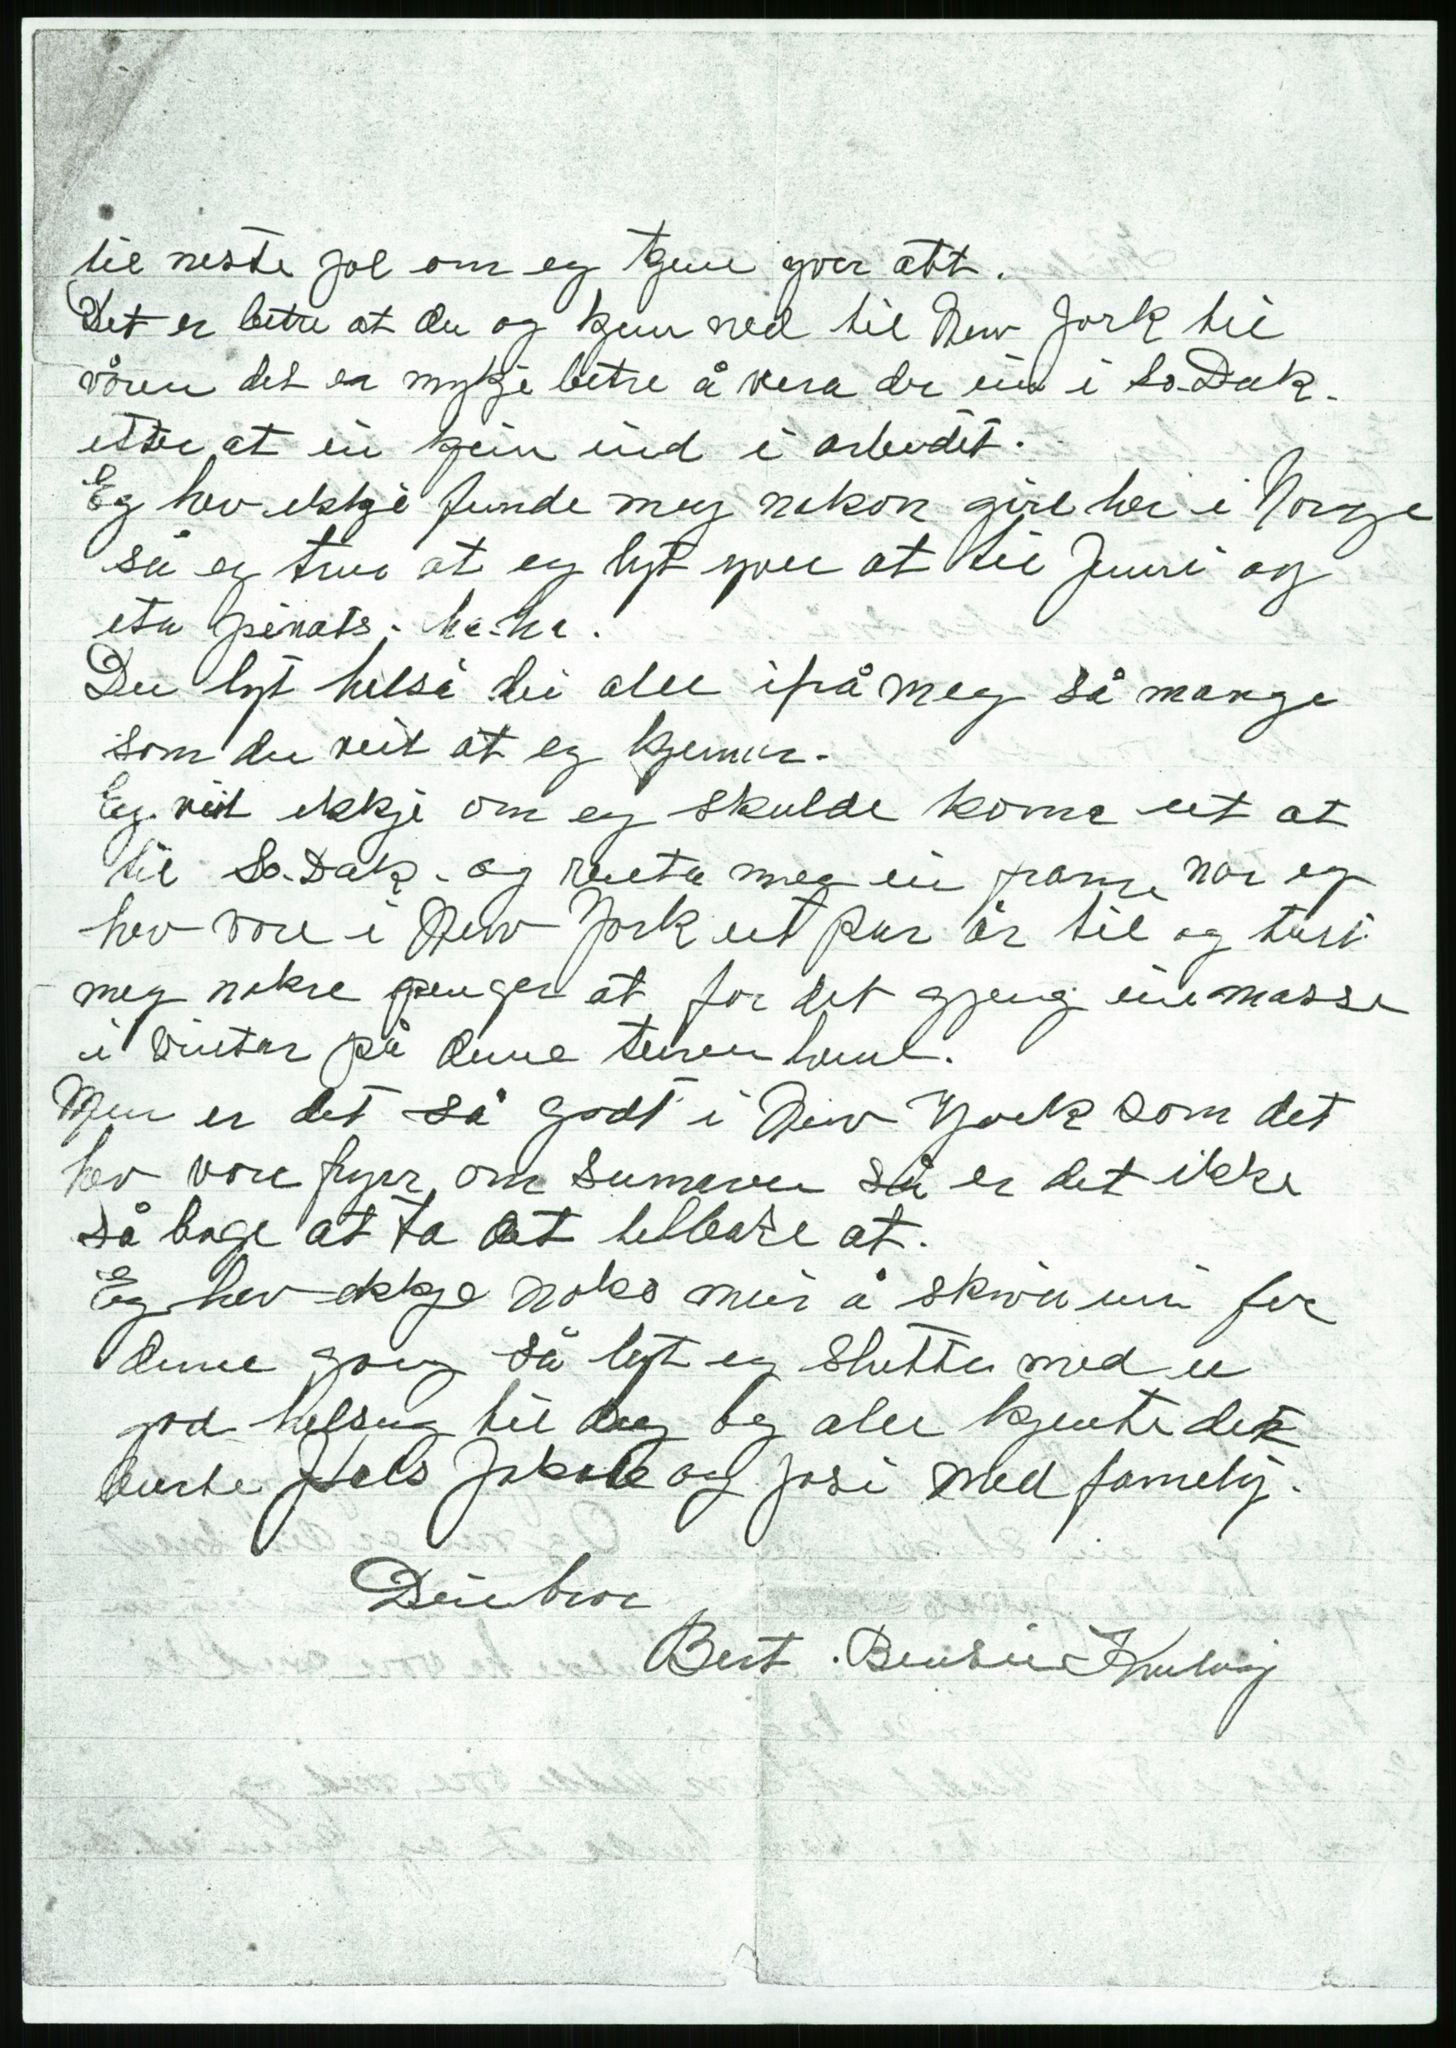 til neste jol om eg kjem yver att.
Det er betre at du og kjem ned til New Jork til
våren det er mykje betre å vera der ein i So. Dak.
etter at ein kjem ind i arbeidet.
Eg hev ikkje funde meg nokon girl her i Norge
så eg trur at eg lyt yver at til Juni og
eta pinats. ha-ha.
Du lyt helsa dei alle ifrå meg så mange
som du veit at eg kjenner.
Eg veit ikkje om eg skulde koma ut at
til So. Dak. og renta meg ein farm nor eg
hev vore i New York eit par år til og tent
meg nokre penger at for det gjeng ein masse
i vinter på denne turen heim.
Men er det så godt i New York som det
hev vore fyrr om summeren så er det ikke
så bage at ta det tilbake at.
Eg hev ikkje noko meir å skriva um for
denne gong så lyt eg slutta med ei
god helsing til deg og alle kjente der
borte Nels Jakob og Josi med famely.
Dein bror
Bert. Bentsein